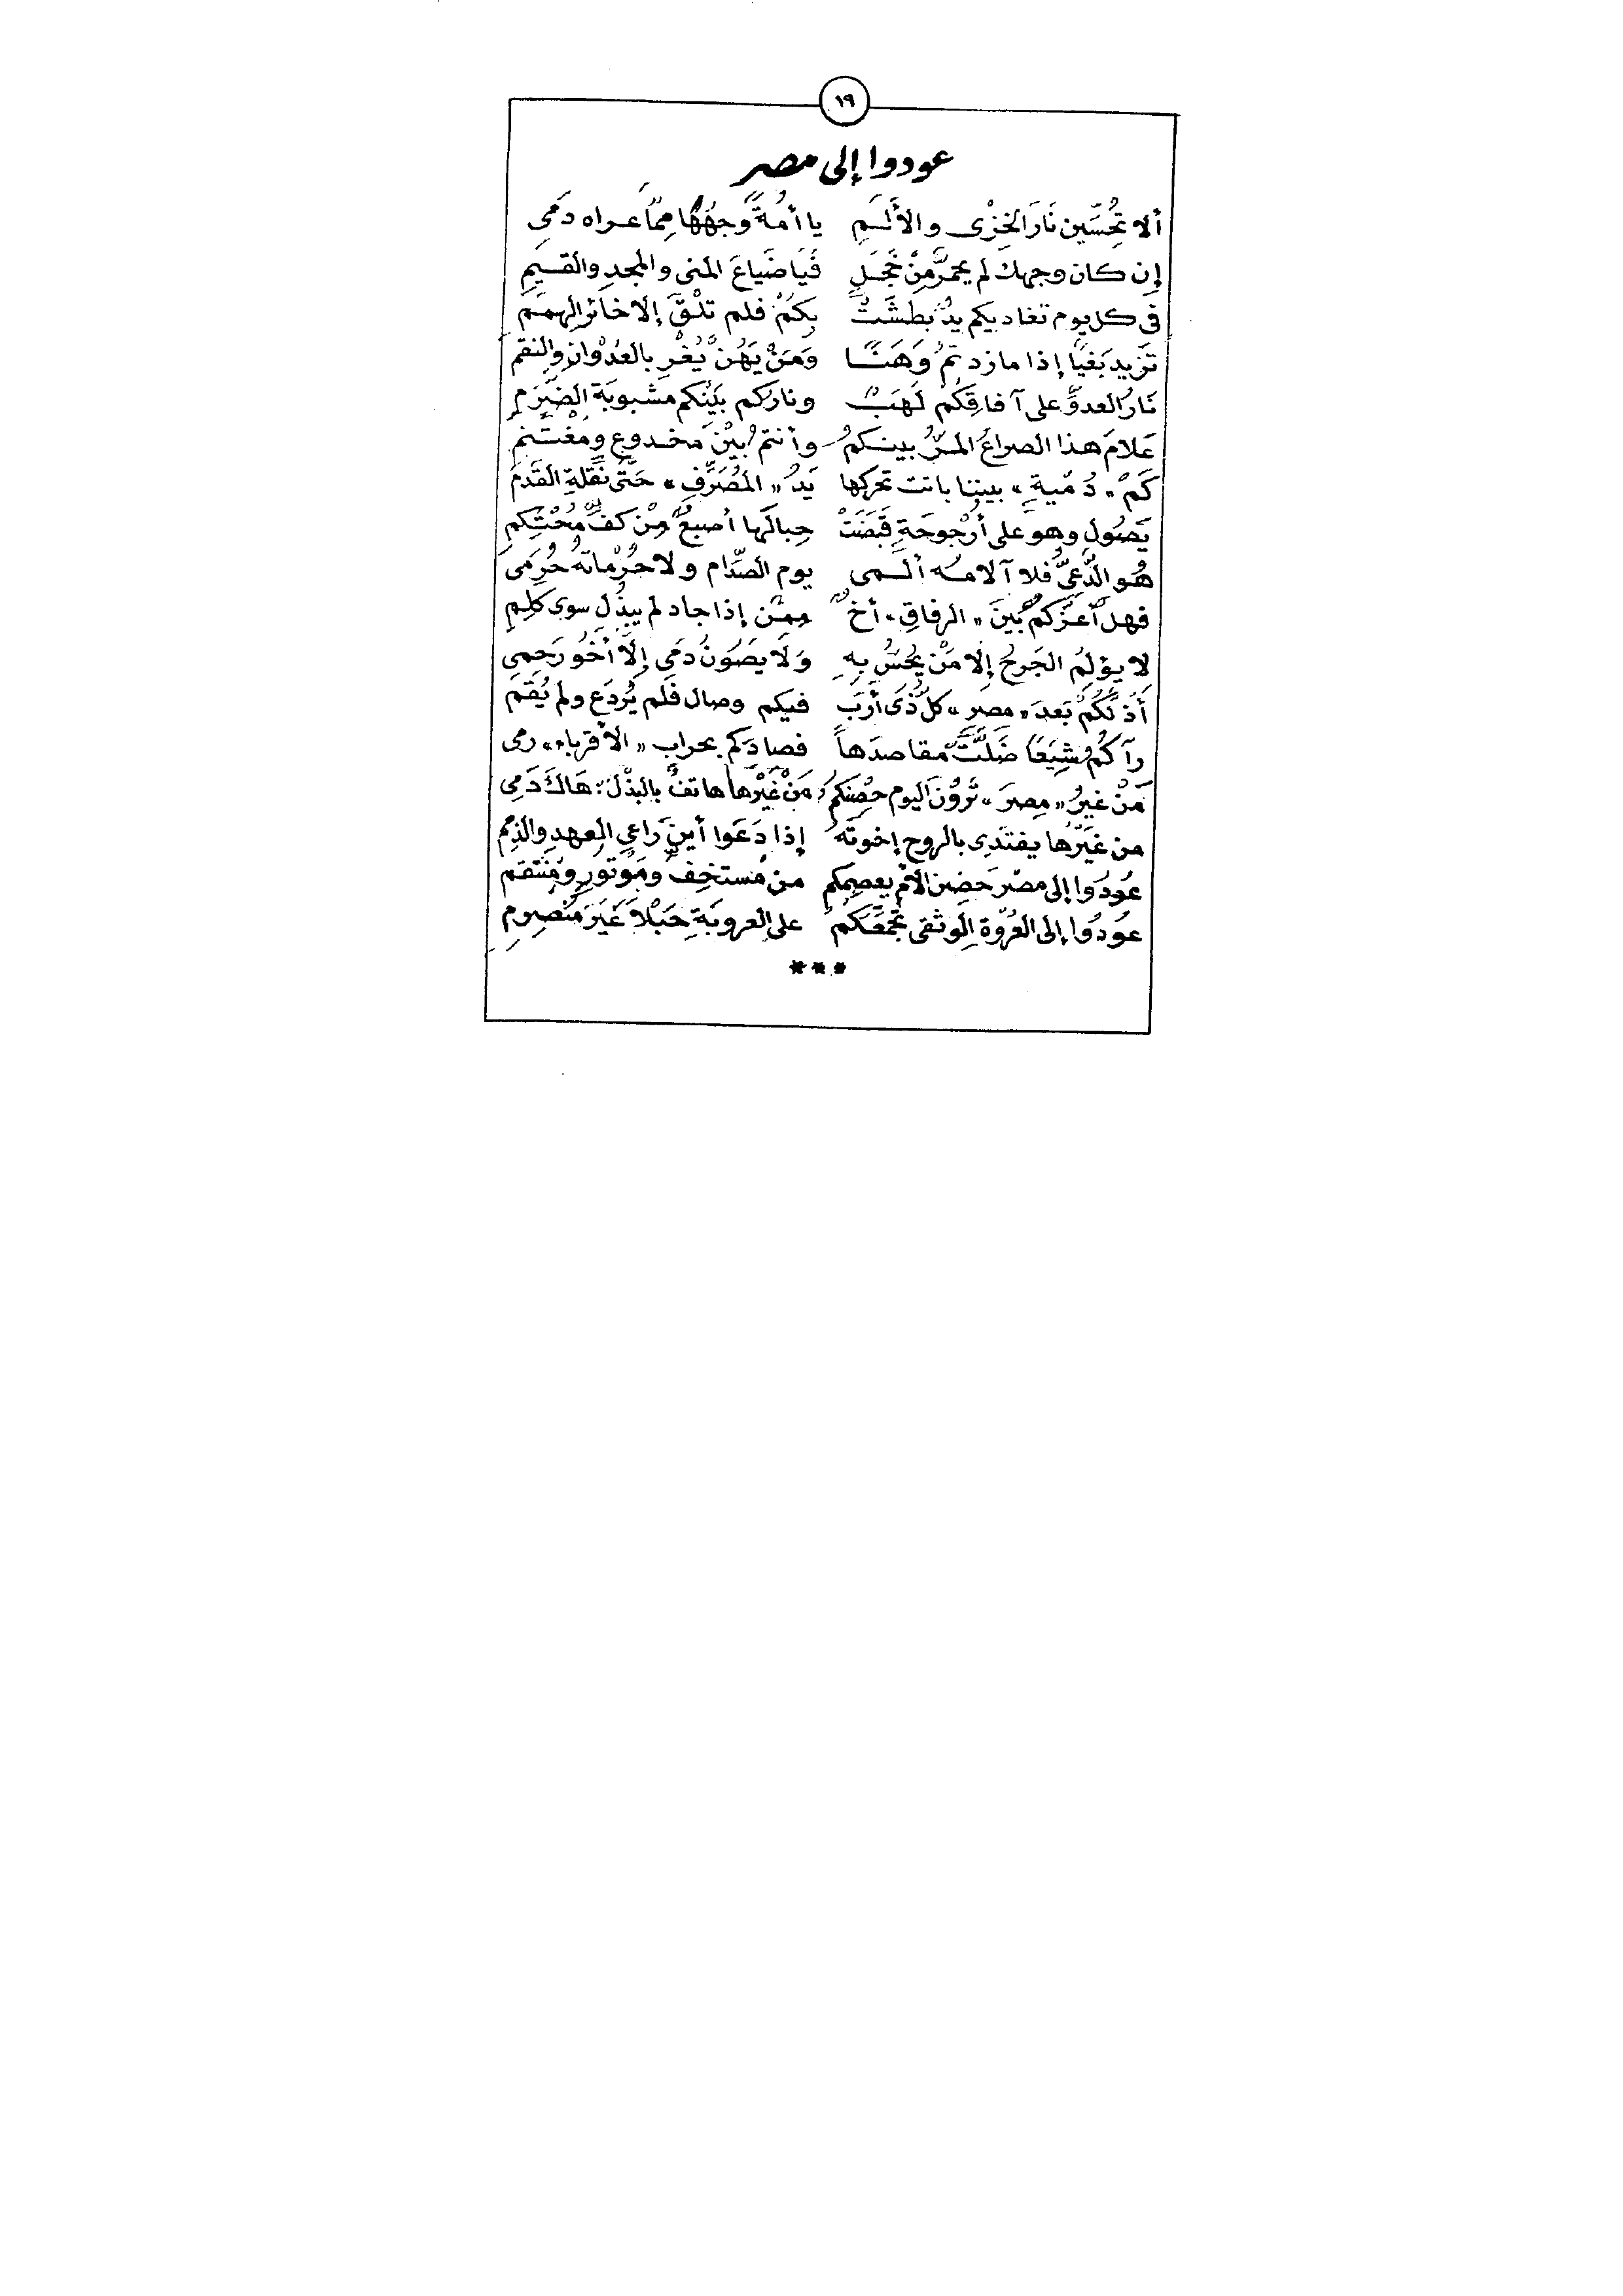 ١٩
عودوا إلى مصر
ألا تحُسِّين نَارَ الخِزْى والأَلَمِ يا أمةً وجهُهَا مِمّا عراه دَمِى
إن كان وجهك لم يحمرَّ مِنْ خَجَلٍ فَيَا ضَياعَ المنى والمجدِ والقيمِ
فى كل يوم تغاديكم يدٌ بطشَتْ بِكمُ فلم تلْقَ إلا خائر الهممِ
تزيد بَغْيًا إذا ما زدتمُ وَهَنًا وَمَنْ يَهُنْ يُغْرِ بالعُدْوانِ والنقم
نَارُ العدوِّ على آفاقِكُمْ لَهَبٌ وناركم بَيْنكم مشبوبَة الضَّرَمِ
عَلامَ هذا الصراعُ المرُّ بينكمُ وأنتمُ بيْنَ مخدوعٍ ومُغْتَنم
كَمْ « دُمْيةٍ » بيننا باتت تحركها يَدُ « المُصَرِّفِ » حَتَّى نَقلةِ القَدَمِ
يَصُول وهو على أرْجوحَةٍ قَبَضَتْ حِبالَها أصبعٌ مِنْ كفِّ مُحْتكِم
هُو الدَّعِىُّ فلا آلامُه ألمى يوم الصِّدَام ولا حُرْماتهُ حُرَمى
فهل أعَزَّكمُ بَينَ « الرفاقِ » أخٌ مِمَّن إذا جاد لم يبذُل سوى كَلِمِ
لا يؤلِمُ الجَرحُ إلا مَنْ يُحسُّ بِهِ وَلَا يصُونُ دمَى إلَّا أخُو رَحِمِى
أذلَّكُمْ بَعدَ « مصرِ » كلُّ ذى أرَبٍ فيكم وصال فلم يُردَع ولم يُقَمِ
رآكمُ شِيَعًا ضَلَّتْ مقاصدَهاً فصادكم بحرابِ « الأقرباء » رمى
مَنْ غيرُ « مِصرَ » تَرَوْنَ اليوم حِصْنكمُ مَنْ غَيْرُها هاتفٌ بالبذْلَ : هَاكَ دَمِى
من غَيرُها يفتدِى بالروح إخوتَهُ إذا دَعَوا أين رَاعى العهدِ والذمم
عُودُوا إلى مصْرَ حَضِن الأمِّ يعصِمكم من مُستخِفٍّ ومَوْتورٍ ومُنتقم
عُودُوا إلى العُرْوَة الوثقى تجمِّعكمُ على العروبَةِ حَبْلاً غَيَر مُنْصرِم
***